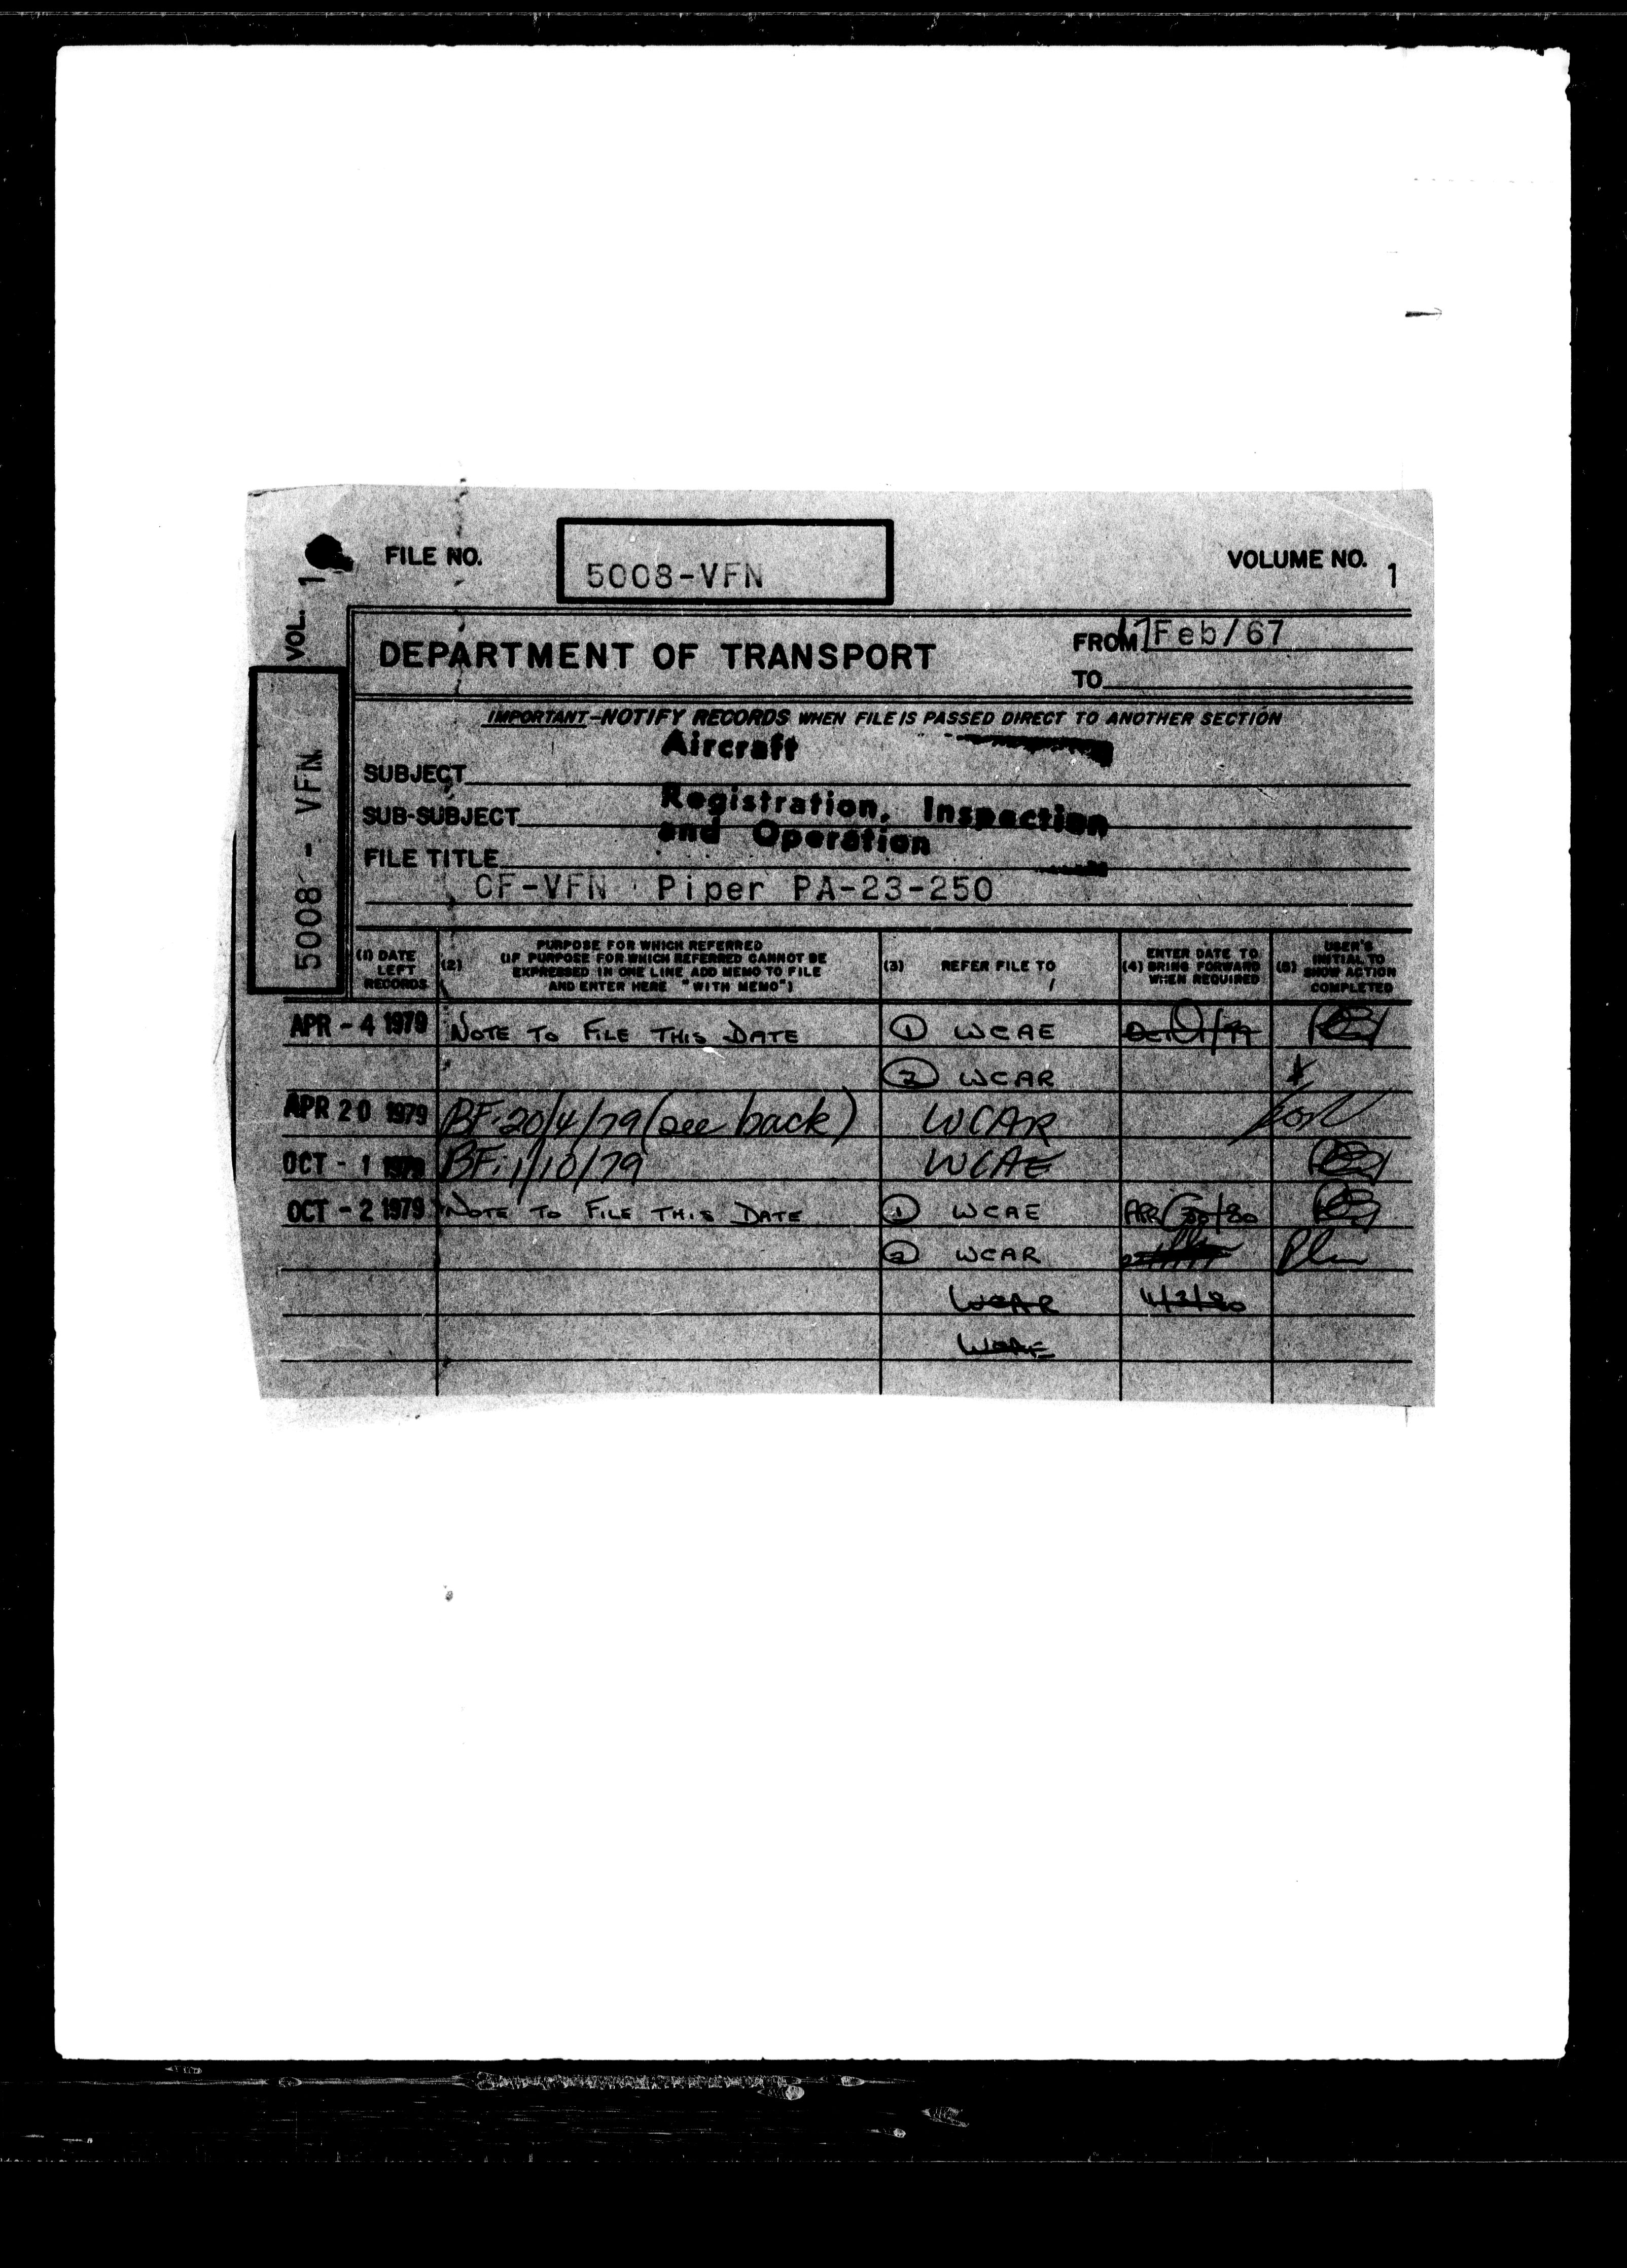 FILE NO.
5008-VFN
VOLUME NO. 1
VOL. 1
5008 - VFN
DEPARTMENT OF TRANSPORT
FROM 17 Feb/67
TO
IMPORTANT-NOTIFY RECORDS WHEN FILE IS PASSED DIRECT TO ANOTHER SECTION
Aircraft
SUBJECT
Registration, Inspection
SUB-SUBJECT
and Operation
FILE TITLE
CF-VFN Piper PA-23-250
(1) DATE LEFT RECORDS
(2) PURPOSE FOR WHICH REFERRED
(IF PURPOSE FOR WHICH REFERRED CANNOT BE
EXPRESSED IN ONE LINE ADD MEMO TO FILE
AND ENTER HERE "WITH MEMO")
(3) REFER FILE TO
(4) ENTER DATE TO BRING FORWARD WHEN REQUIRED
(5) USER'S INITIAL TO SHOW ACTION COMPLETED
APR - 4 1979 NOTE TO FILE THIS DATE 1 WCAE
2 WCAR
APR 20 1979 BF: 20/4/79 (see back) WCAR
OCT - 1 1979 BF: 1/10/79 WCAE
OCT - 2 1979 NOTE TO FILE THIS DATE 1 WCAE APR 30/80
2 WCAR
WCAR
WCAE